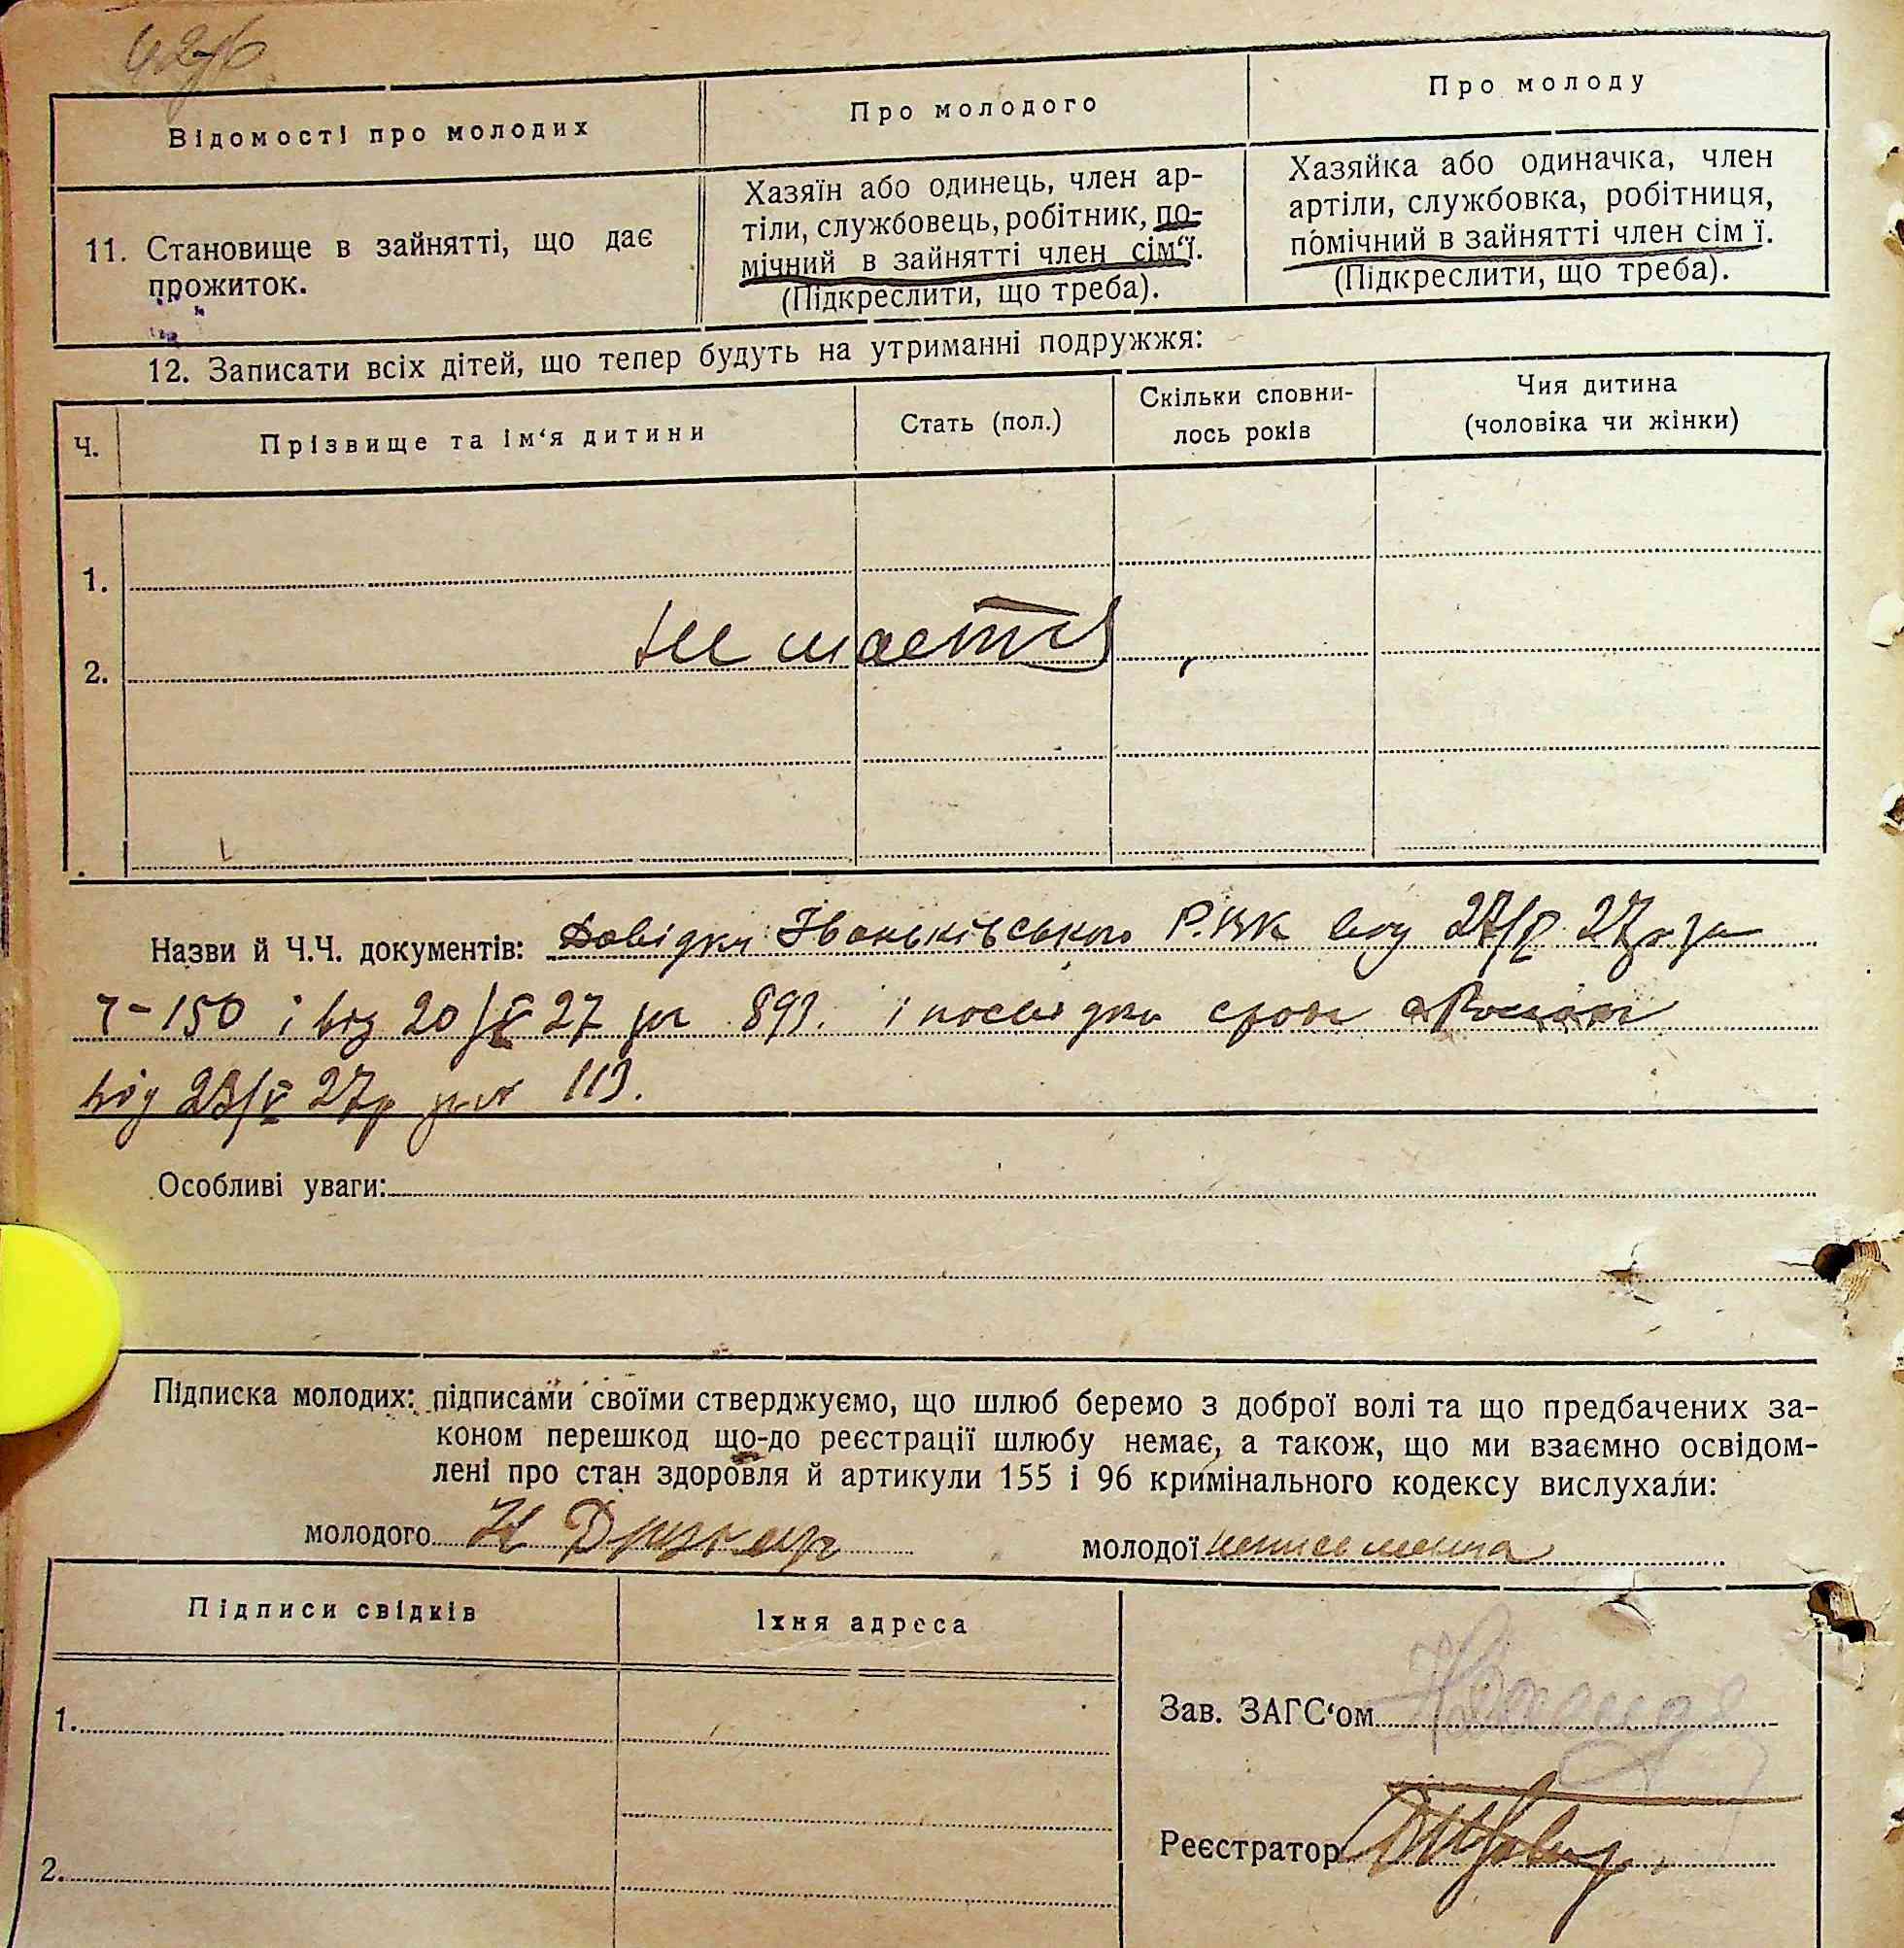 Відомості про молодих
Про молодого
Про молоду
11. Становище в зайнятті, що дає
прожиток.
Хазяїн або одинець, член ар-
тіли, службовець, робітник, по-
мічний в зайнятті член сім‘ї.
(Підкреслити, що треба).
Хазяйка або одиначка, член
артіли, службовка, робітниця,
помічний в зайнятті член сім ї.
(Підкреслити, що треба).
12. Записати всіх дітей, що тепер будуть на утриманні подружжя:
Ч.
Прізвище та ім‘я дитини
Стать (пол.)
Скільки сповни-
лось років
Чия дитина
(чоловіка чи жінки)
1.
2.
не мається
Назви й Ч.Ч. документів: Довідки Іваньківського Р.ВК від 27р за
ч-150 і від 20/ 27 за 893. і посвідка
від 23/V 27р за 113.
Особливі уваги:
Підписка молодих: підписами своїми стверджуємо, що шлюб беремо з доброї волі та що предбачених за-
коном перешкод що-до реєстрації шлюбу немає, а також, що ми взаємно освідом-
лені про стан здоровля й артикули 155 і 96 кримінального кодексу вислухали:
молодого
молодої неписьменна
Підписи свідків
Їхня адреса
1.
2.
Зав. ЗАГС‘ом
Реєстратор